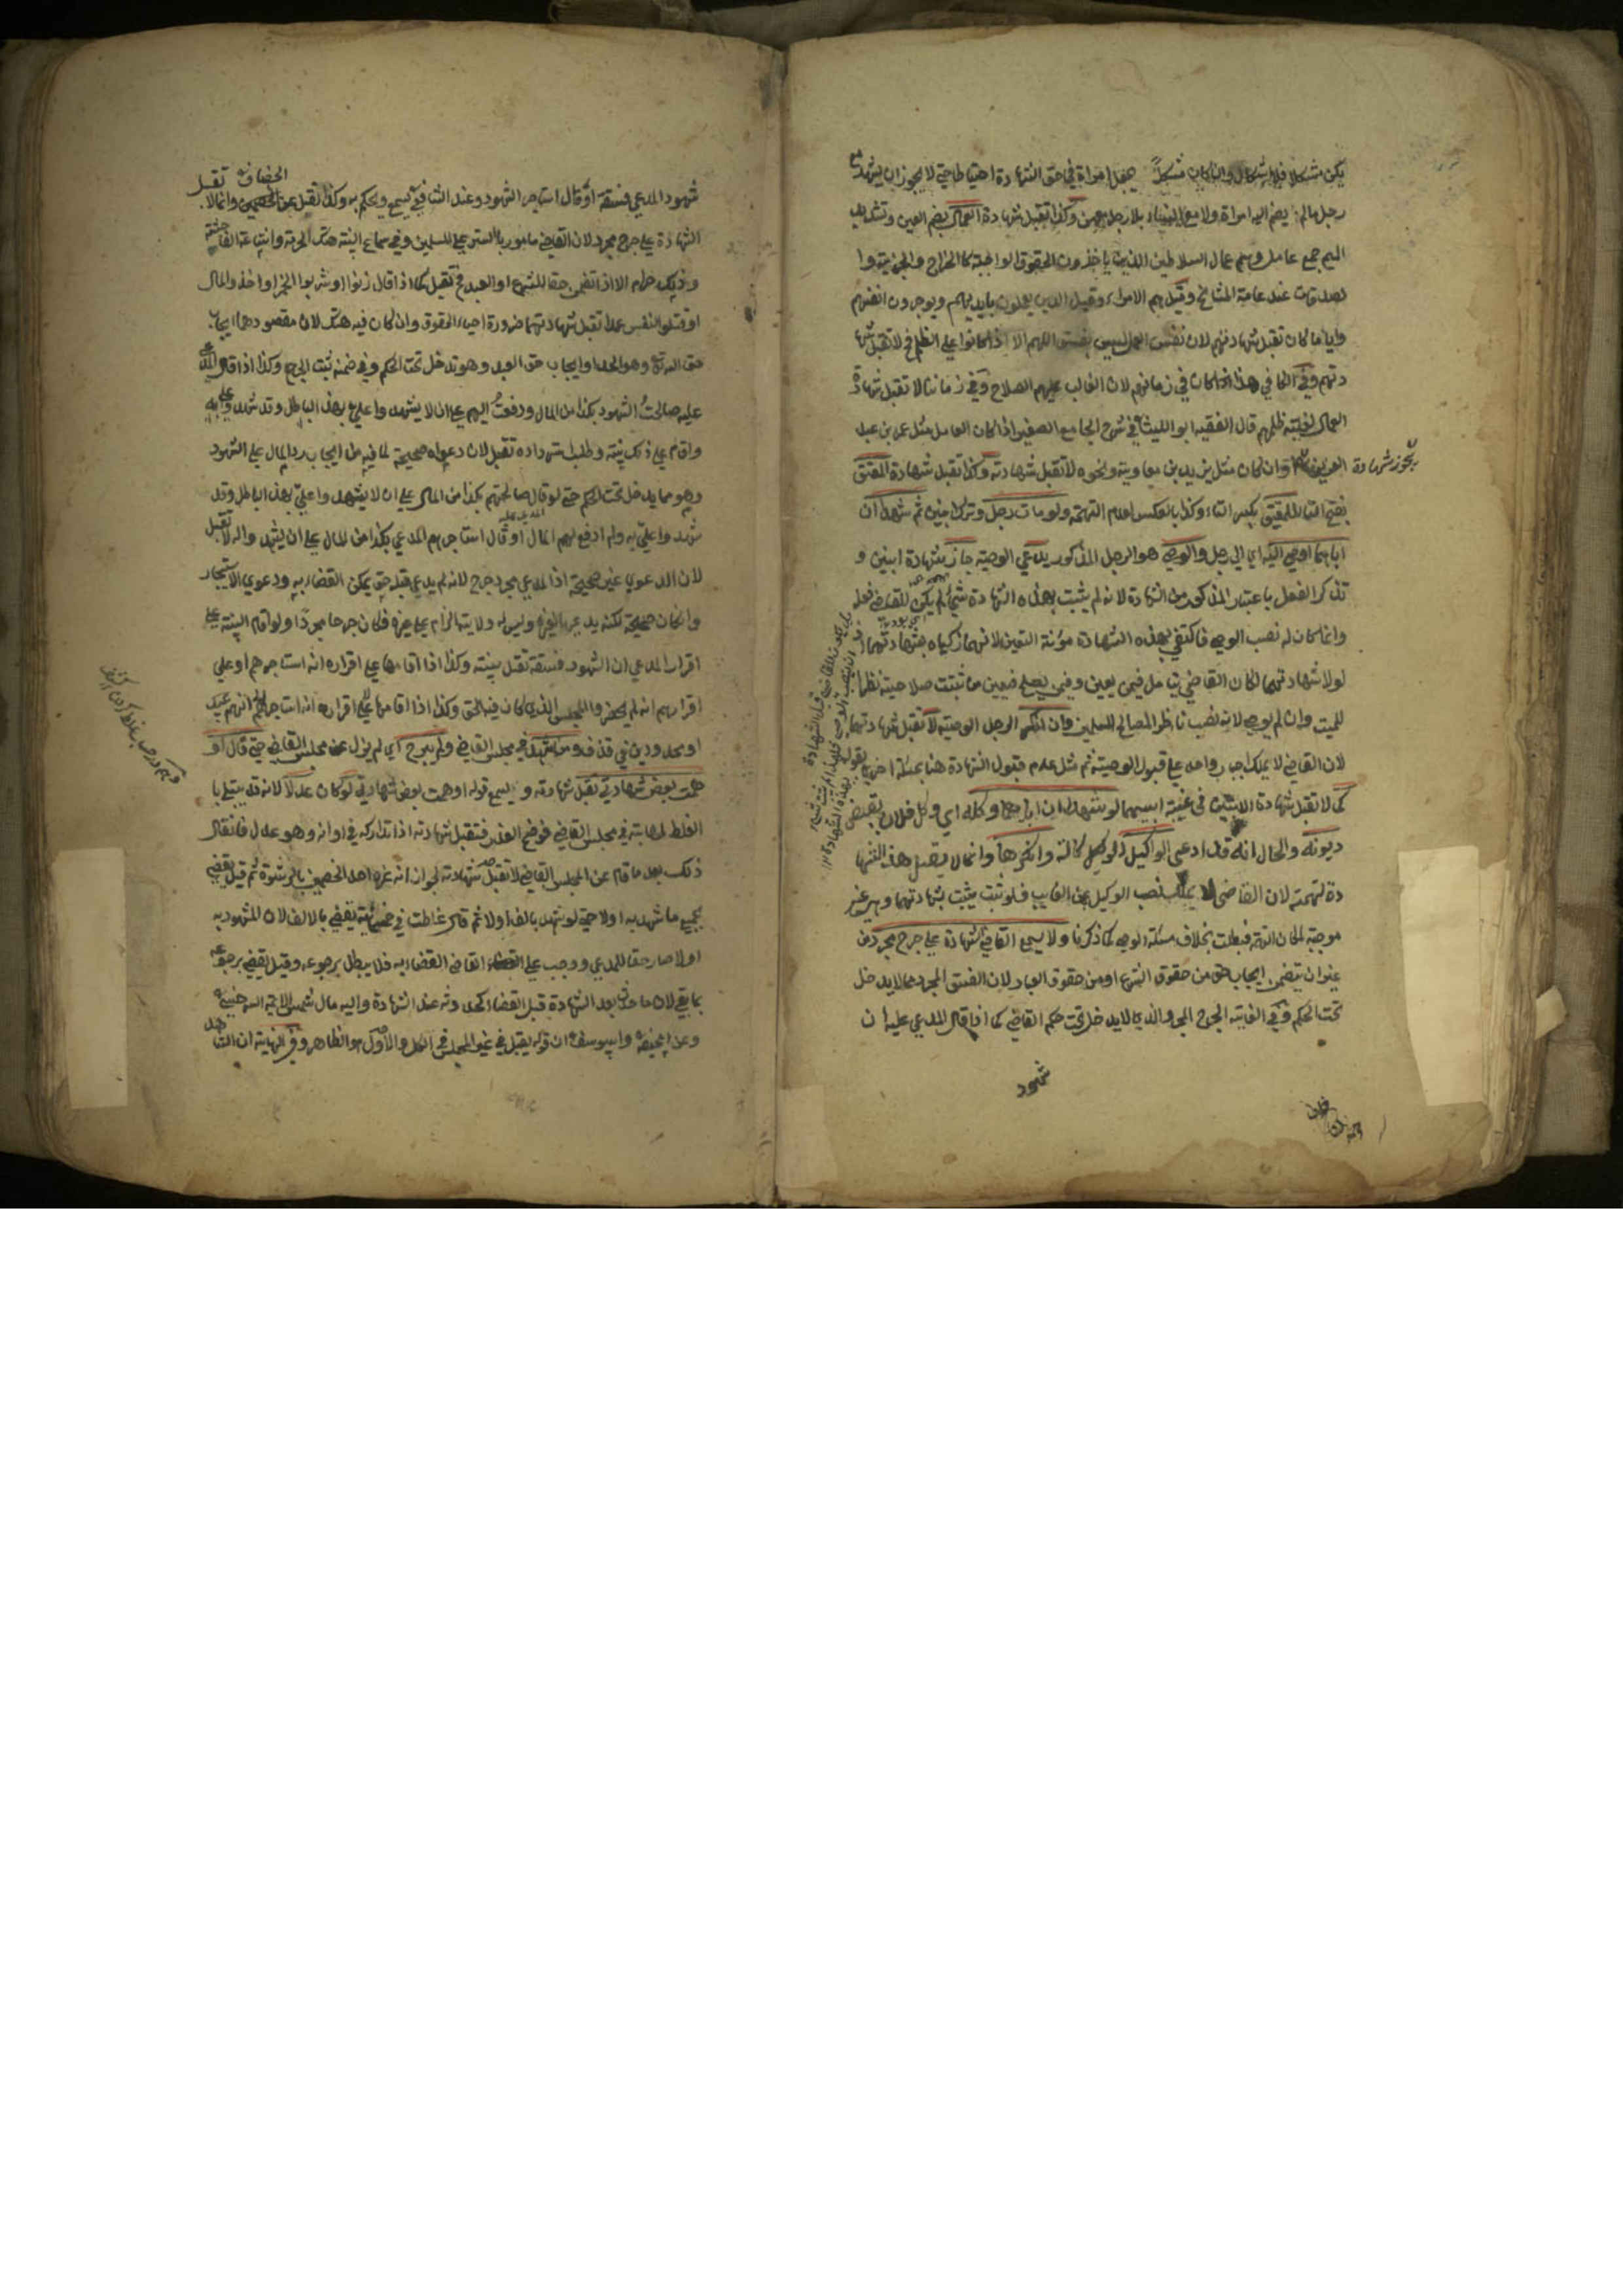 يكن مشكلا فلا اشكال وان كان مشكلاً يجعل امراة في حق الشهادة احتياطا حتى لا يجوز ان يشهد مع
رجل مالم يضم اليه امراة ولا مع النساء بلا رجل وكذا تقبل شهادة العمال بضم العين وتشديد
الميم جمع عامل وهم عمال السلاطين الذين ياخذون الحقوق الواجبة كالخراج والجزية وا
لصدقات عند عامة المشايخ وقيل هم الامراء وقيل الذين يعملون بايديهم ويوجرون انفسهم
وايا ما كان تقبل شهادتهم لان نفس العمل ليس بفسق اللهم الا اذا كانوا على الظلم فح لا تقبل شها
دتهم وفي الكافي هذا اذا كان في زمانهم لان الغالب عليهم الصلاح وفي زماننا لا تقبل شهادة
العمال لغلبة ظلمهم قال الفقيه ابو الليث في شرح الجامع الصغير اذا كان العامل مثل عمر بن عبد
العزيز تجوز شهادة وان كان مثل يزيد بن معاوية ونحوه لا تقبل شهادته وكذا تقبل شهادة المعتق
بفتح التا للمعتق بكسر التاء وكذا بالعكس لعدم التهمة ولو مات رجل وترك ابنين ثم شهدا ان
اباهما اوصى اليه اي الى رجل والوصي هو الرجل المذكور يدعي الوصية جاز شهادة ابنين و
تذكر الفعل باعتبار المذكور من الشهادة لانه لم يثبت بهذه الشهادة شيء لم يكن للقاضي فعله
وانما كان له نصب الوصي فاكتفى بهذه الشهادة مؤنة التعين لانهما زكياه بشهادتهما
لولا شهادتهما لكان القاضي يتامل فيمن يعين وفيمن يصلح فيعين من ثبتت صلاحيته نظرا
للميت وان لم يوص لانه نصب ناظر المصالح للمسلمين وان انكر الرجل الوصية لا تقبل شهادتهما
لان القاضي لا يملك اجبار واحد على قبول الوصية ثم مثل عدم قبول الشهادة هنا بمسئلة اخرى بقوله
كما لا تقبل شهادة الابنين في غيبة ابيهما لو شهدا ان اباهما وكله اي وكل فلان بقبض
ديونه والحال انه قد ادعى الوكيل الوكالة وانكرها وانما لا تقبل هذه الشها
دة لتهمة لان القاضي لا يملك نصب الوكيل عن الغايب فلو ثبت يثبت بشهادتهما وهي غير
موجبة لمكان التهمة فبطلت بخلاف مسئلة الوصي كما ذكرنا ولا يسمع القاضي الشهادة على جرح مجرد من
غير ان يتضمن ايجاب حق من حقوق الشرع او من حقوق العباد لان الفسق المجرد مما لا يدخل
تحت الحكم وفي الغاية الجرح المجرد الذي لا يدخل تحت حكم القاضي كما اذا قال المدعي عليه ان
شهود
شهود المدعي فسقة او قال استاجر الشهود وعند الشافعي يسمع ويحكم به وكذا تقبل عن الخصاف وانما لا تقبل
الشهادة على جرح مجرد لان القاضي مامور بالستر على المسلمين وفي سماع البينة هتك الحرمة واشاعة الفاحشة
وذلك حرام الا اذا تضمن حقا للشرع او العبد فح تقبل كما اذا قال زنوا او شربوا الخمر او اخذوا المال
او قتلوا النفس عمدا تقبل شهادتهما ضرورة احياء الحقوق وان كان فيه هتك لان مقصودهما ايجاب
حق الله تع وهو الحد او ايجاب حق العبد وهو تدخل تحت الحكم وفي ضمنه ثبت الجرح وكذا اذا قال المدعى
عليه صالحتُ الشهود بكذا من المال ودفعتُ اليهم على ان لا يشهدوا علي بهذا الباطل وقد شهدوا علي به
واقام على ذلك بينة وطلب استرداده تقبل لان دعواه صحيحة لما فيه من ايجاب رد المال على الشهود
وهو مما يدخل تحت الحكم حتى لو قال صالحتهم بكذا من المال على ان لا يشهدوا علي بهذا الباطل وقد
شهدوا علي به ولم ادفع لهم المال او قال المدعى عليه استاجرهم المدعي بكذا من المال على ان يشهدوا له لا تقبل
لان الدعوى غير صحيحة اذ المدعي مجرد جرح لانه لم يدع قبله حتى يمكن القضاء به ودعوى الاستيجار
وان كان صحيحة لكنه يدعيها لغيره وليس له ولاية الزام على غيره فكان جرحا مجردًا ولو اقام البينة على
اقرار المدعي ان الشهود فسقة تقبل بينته وكذا اذا اقامها على اقراره انه استاجرهم او على
اقرارهم انه لم يحضروا المجلس الذي كان فيه الحق وكذا اذا اقامها على انهم عبيد
او محدودين في قذف ومن شهد في مجلس القاضي ولم يبرح اي لم يزل عن مجلس القاضي حتى قال او
همت بعض شهادتي تقبل شهادته ويسمع قوله اوهمت بعض شهادتي لو كان عدلا لانه قد يبتلى با
الغلط لمهابته في مجلس القاضي فوضح العذر فتقبل شهادته اذا تداركه في اوانه وهو عدل فان قال
ذلك بعد ما قام عن المجلس القاضي لا تقبل شهادته لجواز انه غره احد الخصمين بالرشوة ثم قيل يقضي
بجميع ما شهد به اولا حتى لو شهد بالف اولا ثم قال غلطت في خمسمائة يقضي بالالف لان المشهود به
اولا صار حقا للمدعي ووجب على القاضي القضاء به فلا يبطل برجوعه وقيل يقضي برجوعه
بما بقي لان ما حدث بعد الشهادة قبل القضاء كحدوثه عند الشهادة واليه مال شمس الائمة السرخسي
وعن ابيحنيفة وابيوسف ان قوله يقبل في غير المجلس في الكل والاول هو الظاهر وفي النهاية ان الشاهد